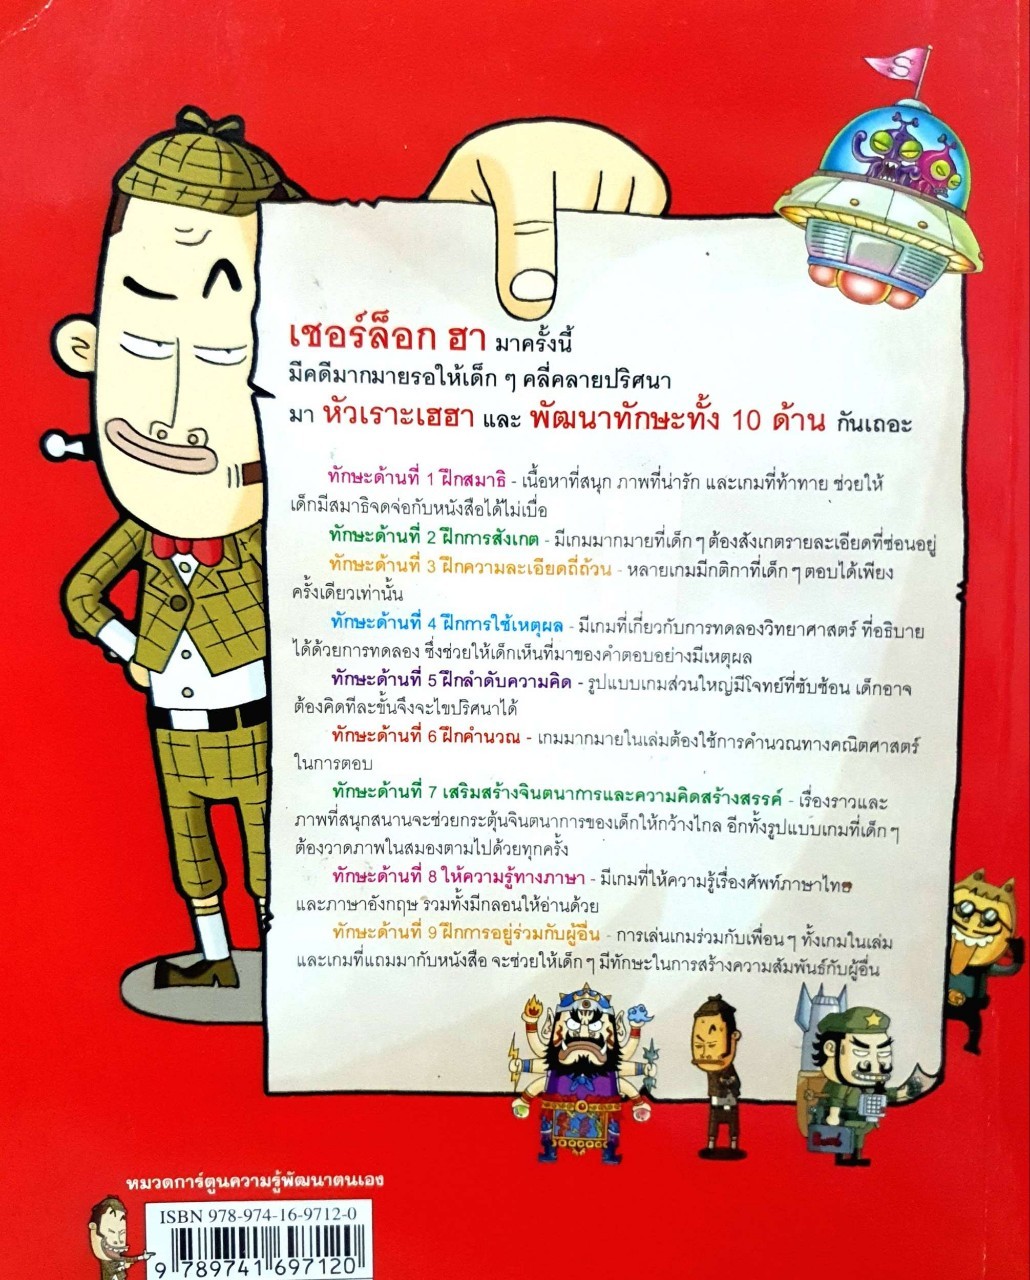 S
เชอร์ล็อก ฮา มาครั้งนี้
มีคดีมากมายรอให้เด็ก ๆ คลี่คลายปริศนา
มา หัวเราะเฮฮา และ พัฒนาทักษะทั้ง 10 ด้าน กันเถอะ
ทักษะด้านที่ 1 ฝึกสมาธิ - เนื้อหาที่สนุก ภาพที่น่ารัก และเกมที่ท้าทาย ช่วยให้
เด็กมีสมาธิจดจ่อกับหนังสือได้ไม่เบื่อ
ทักษะด้านที่ 2 ฝึกการสังเกต - มีเกมมากมายที่เด็ก ๆ ต้องสังเกตรายละเอียดที่ซ่อนอยู่
ทักษะด้านที่ 3 ฝึกความละเอียดถี่ถ้วน - หลายเกมมีกติกาที่เด็ก ๆ ตอบได้เพียง
ครั้งเดียวเท่านั้น
ทักษะด้านที่ 4 ฝึกการใช้เหตุผล - มีเกมที่เกี่ยวกับการทดลองวิทยาศาสตร์ ที่อธิบาย
ได้ด้วยการทดลอง ซึ่งช่วยให้เด็กเห็นที่มาของคำตอบอย่างมีเหตุผล
ทักษะด้านที่ 5 ฝึกลำดับความคิด - รูปแบบเกมส่วนใหญ่มีโจทย์ที่ซับซ้อน เด็กอาจ
ต้องคิดทีละขั้นจึงจะไขปริศนาได้
ทักษะด้านที่ 6 ฝึกคำนวณ - เกมมากมายในเล่มต้องใช้การคำนวณทางคณิตศาสตร์
ในการตอบ
ทักษะด้านที่ 7 เสริมสร้างจินตนาการและความคิดสร้างสรรค์ - เรื่องราวและ
ภาพที่สนุกสนานจะช่วยกระตุ้นจินตนาการของเด็กให้กว้างไกล อีกทั้งรูปแบบเกมที่เด็ก ๆ
ต้องวาดภาพในสมองตามไปด้วยทุกครั้ง
ทักษะด้านที่ 8 ให้ความรู้ทางภาษา - มีเกมที่ให้ความรู้เรื่องศัพท์ภาษาไทย
และภาษาอังกฤษ รวมทั้งมีกลอนให้อ่านด้วย
ทักษะด้านที่ 9 ฝึกการอยู่ร่วมกับผู้อื่น - การเล่นเกมร่วมกับเพื่อน ๆ ทั้งเกมในเล่ม
และเกมที่แถมมากับหนังสือ จะช่วยให้เด็ก ๆ มีทักษะในการสร้างความสัมพันธ์กับผู้อื่น
หมวดการ์ตูนความรู้พัฒนาตนเอง
ISBN 978-974-16-9712-0
9 789741 697120